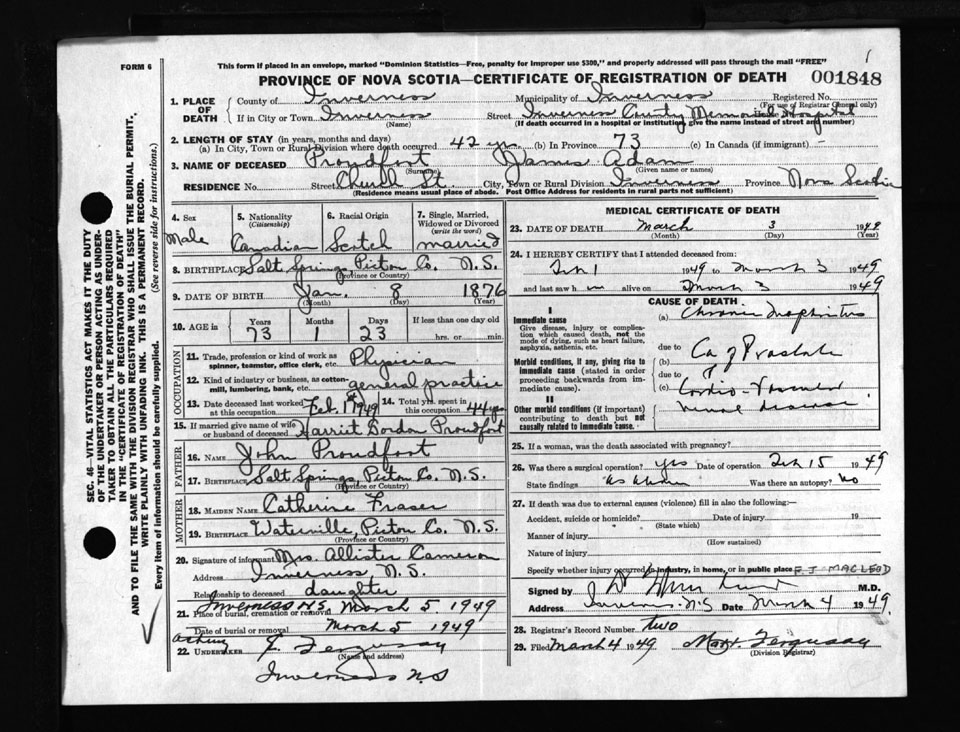 FORM 6
This form if placed in an envelope, marked "Dominion Statistics—Free, penalty for improper use $300," and properly addressed will pass through the mail "FREE"
PROVINCE OF NOVA SCOTIA—CERTIFICATE OF REGISTRATION OF DEATH 001848
1. PLACE OF DEATH County of Inverness Municipality of Inverness Registered No.
(For use of Registrar General only)
If in City or Town Inverness Street Inverness County Memorial Hospital
(Name) (If death occurred in a hospital or institution, give the name instead of street and number)
2. LENGTH OF STAY (in years, months and days)
(a) In City, Town or Rural Division where death occurred 42 yrs (b) In Province 73 (c) In Canada (if immigrant) —
3. NAME OF DECEASED Proudfoot James Adam
(Surname) (Given name or names)
RESIDENCE No. Street Church St. City, Town or Rural Division Inverness Province Nova Scotia
(Residence means usual place of abode. Post Office Address for residents in rural parts not sufficient)
4. Sex Male
5. Nationality (Citizenship) Canadian
6. Racial Origin Scotch
7. Single, Married, Widowed or Divorced (write the word) married
8. BIRTHPLACE Salt Springs, Pictou Co. N.S.
(Province or Country)
9. DATE OF BIRTH Jan. 8 1876
(Month) (Day) (Year)
10. AGE in Years 73 Months 1 Days 23 If less than one day old hrs. or min.
OCCUPATION
11. Trade, profession or kind of work as spinner, teamster, office clerk, etc. Physician
12. Kind of industry or business, as cotton-mill, lumbering, bank, etc. general practice
13. Date deceased last worked at this occupation Feb. 1st 1949 14. Total yrs. spent in this occupation 44 yrs
15. If married give name of wife or husband of deceased Harriet Gordon Proudfoot
FATHER
16. Name John Proudfoot
17. Birthplace Salt Springs, Pictou Co. N.S.
(Province or Country)
MOTHER
18. Maiden Name Catherine Fraser
19. Birthplace Waterville, Pictou Co. N.S.
(Province or Country)
20. Signature of informant Mrs. Allister Cameron
Address Inverness N.S.
Relationship to deceased daughter
21. Place of burial, cremation or removal Inverness N.S. March 5, 1949
Date of burial or removal March 5 1949
22. UNDERTAKER Acting F. Ferguson
(Name and address)
Inverness N.S
MEDICAL CERTIFICATE OF DEATH
23. DATE OF DEATH March 3 1949
(Month) (Day) (Year)
24. I HEREBY CERTIFY that I attended deceased from
Feb 1 1949 to March 3 1949
and last saw h im alive on March 3 1949
CAUSE OF DEATH
I
Immediate cause (a) Chronic Nephritis
Give disease, injury or complication which caused death, not the mode of dying, such as heart failure, asphyxia, asthenia, etc.
due to Ca of Prostate
Morbid conditions, if any, giving rise to immediate cause (stated in order proceeding backwards from immediate cause). (b)
due to
(c) Cardio-Vascular
renal disease
II
Other morbid conditions (if important) contributing to death but not causally related to immediate cause.
25. If a woman, was the death associated with pregnancy?
26. Was there a surgical operation? yes Date of operation Feb 15 1949
State findings as above Was there an autopsy? No
27. If death was due to external causes (violence) fill in also the following:—
Accident, suicide or homicide? Date of injury 19
(State which)
Manner of injury
(How sustained)
Nature of injury
Specify whether injury occurred in industry, in home, or in public place E.J. MACLEOD
Signed by M.D.
Address Inverness N.S Date March 4 1949
28. Registrar's Record Number two
29. Filed March 4 1949 Ferguson
(Division Registrar)
SEC. 46—VITAL STATISTICS ACT MAKES IT THE DUTY OF THE UNDERTAKER OR PERSON ACTING AS UNDERTAKER TO OBTAIN ALL THE PARTICULARS REQUIRED IN THE "CERTIFICATE OF REGISTRATION OF DEATH" AND TO FILE THE SAME WITH THE DIVISION REGISTRAR WHO SHALL ISSUE THE BURIAL PERMIT.
WRITE PLAINLY WITH UNFADING INK. THIS IS A PERMANENT RECORD.
Every item of information should be carefully supplied. (See reverse side for instructions.)